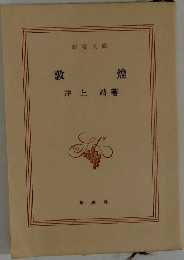 新潮文庫
敦煌
井上靖著
新潮社